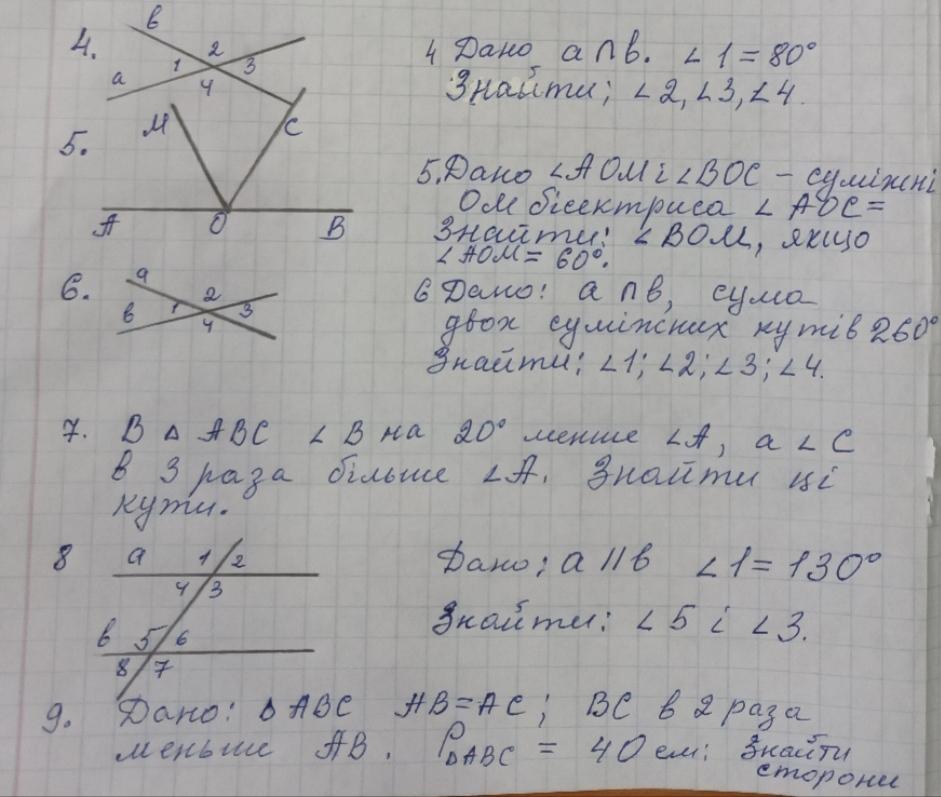 4.
в
а
1 2 3 4
4 Дано а∩в. ∠1=80°
Знайти; ∠2,∠3,∠4.
5.
М
С
А О В
5.Дано ∠АОМ і ∠ВОС – суміжні
ОМ бісектриса ∠АОС=
Знайти: ∠ВОМ, якщо
∠АОМ= 60°.
6.
а
в
1 2 3 4
6 Дано: а∩в, сума
двох суміжних кутів 260°
Знайти; ∠1;∠2;∠3;∠4.
7. В △ АВС ∠В на 20° менше ∠А, а ∠С
в 3 раза більше ∠А. Знайти ці
кути.
8
а 1 2
4 3
в 5 6
8 7
Дано; а||в ∠1=130°
Знайти: ∠5 і ∠3.
9. Дано: △АВС АВ=АС; ВС в 2 раза
меньше АВ. P△ABC = 40 см: Знайти
сторони